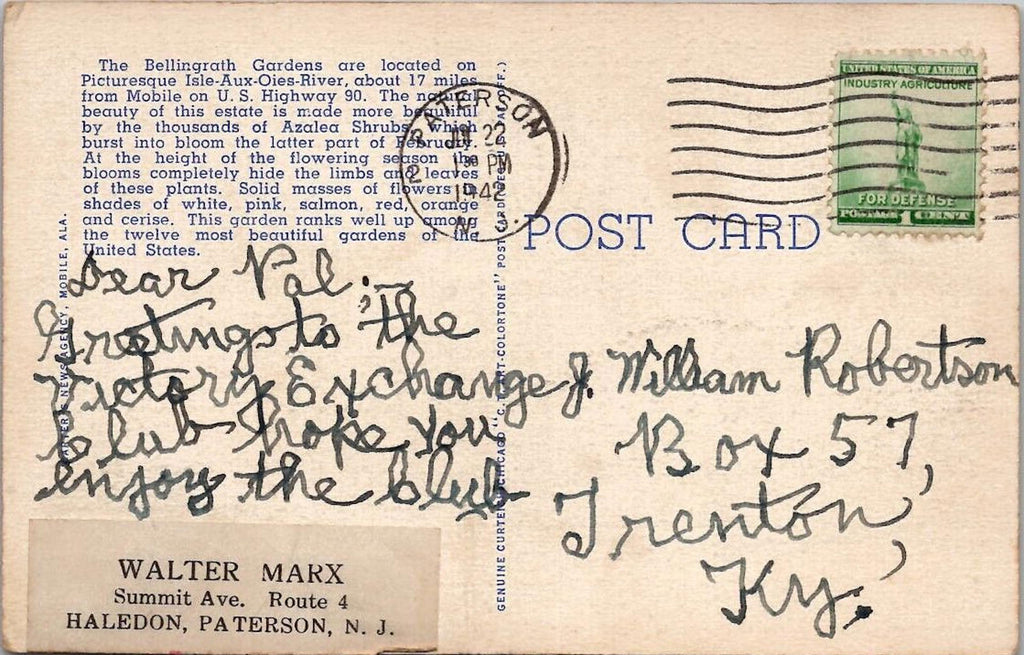 The Bellingrath Gardens are located on
Picturesque Isle-Aux-Oies-River, about 17 miles
from Mobile on U. S. Highway 90. The natural
beauty of this estate is made more beautiful
by the thousands of Azalea Shrubs, which
burst into bloom the latter part of February.
At the height of the flowering season the
blooms completely hide the limbs and leaves
of these plants. Solid masses of flowers in
shades of white, pink, salmon, red, orange
and cerise. This garden ranks well up among
the twelve most beautiful gardens of the
United States.
NEWS AGENCY, MOBILE, ALA.
PATERSON
2
22
1 30 PM
1942
N.
UNITED STATES OF AMERICA
INDUSTRY AGRICULTURE
FOR DEFENSE
POSTAGE 1 CENT
POST CARD
GENUINE CURTEICH-CHICAGO "C. T. ART-COLORTONE" POST CARD
Dear Pal:-
Greetings to the
Victory Exchange
Club hope you
enjoy the club
J. William Robertson
Box 57,
Trenton,
Ky.
WALTER MARX
Summit Ave. Route 4
HALEDON, PATERSON, N. J.